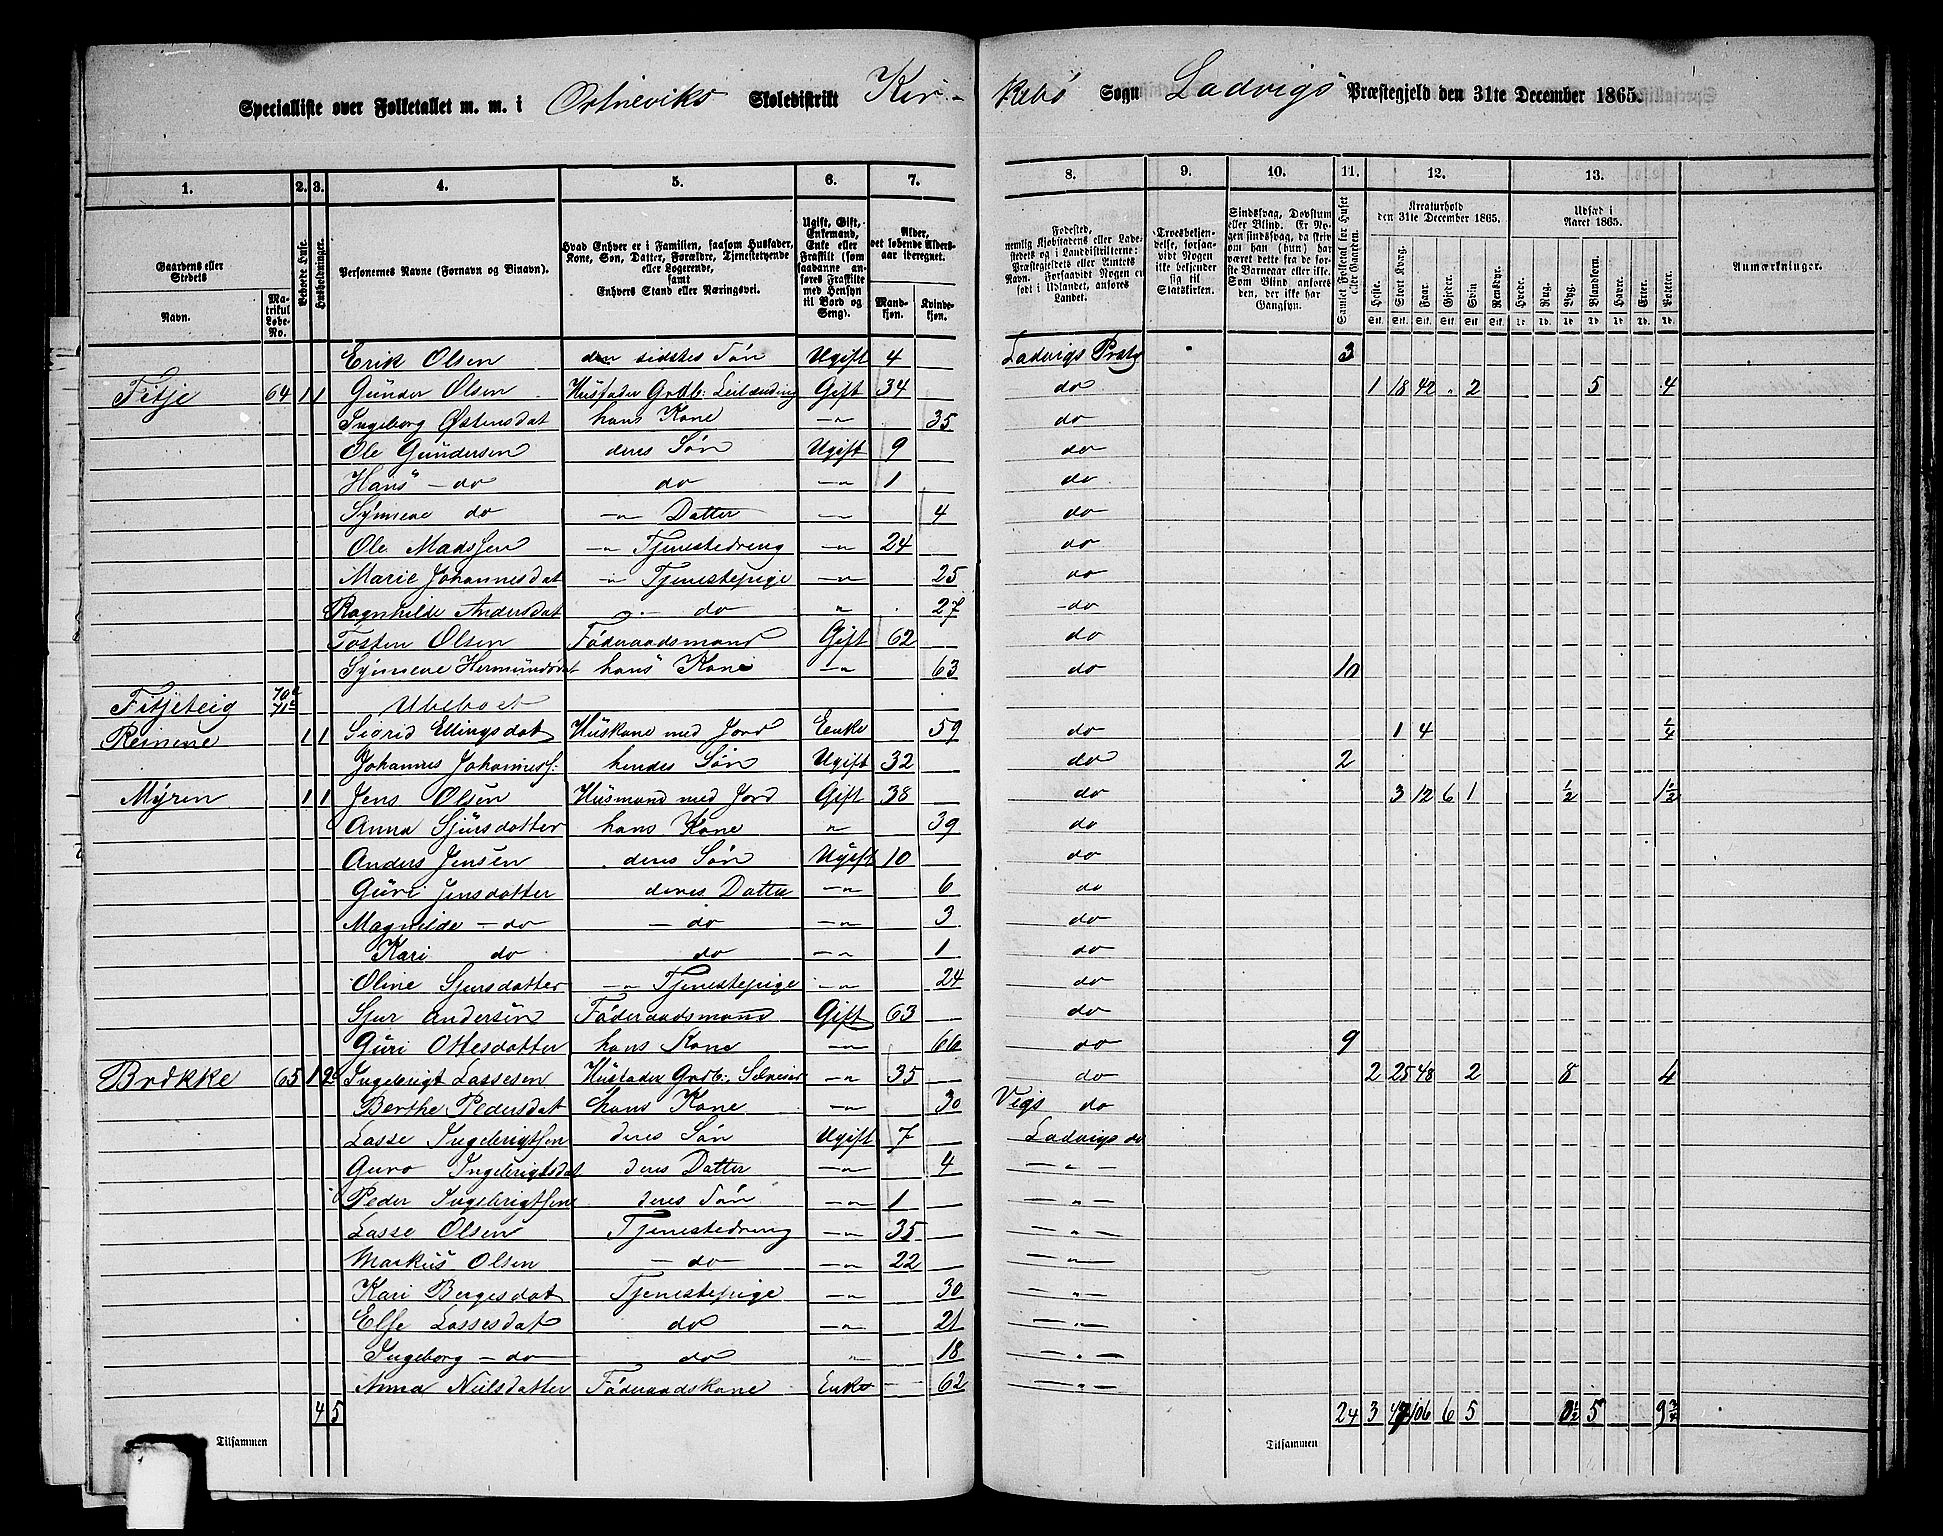 Specialliste over Folketallet m. m. i Ortneviks Skoledistrikt Kir- kebø Sogn Ladvigs Præstegjeld den 31te December 1865.
1. 2. 3. 4. 5. 6. 7. 8. 9. 10. 11. 12. 13.
Gaardens eller Stedets
Navn. Matrikul Løbe-No.
Beboede Huse.
Husholdninger.
Personernes Navne (Fornavn og Binavn).
Hvad Enhver er i Familien, saasom Husfader, Kone, Søn, Datter, Forældre, Tjenestetyende eller Logerende, samt Enhvers Stand eller Næringsvei.
Ugift, Gift, Enkemand, Enke eller Fraskilt (som saadanne anføres Fraskilte med Hensyn til Bord og Seng).
Alder, det løbende Aldersaar iberegnet.
Mandkjøn. Kvindekjøn.
Fødested, nemlig Kjøbstadens eller Ladestedets og i Landdistrikterne: Præstegjeldets eller Amtets Navn. Forsaavidt Nogen er født i Udlandet, anføres Landet.
Troesbekjendelse, forsaavidt Nogen ikke bekjender sig til Statskirken.
Sindssvag, Døvstum eller Blind. Er Nogen sindssvag, da skrives om han (hun) har været det fra de første Barneaar eller ikke. Som Blind anføres den, der ikke har Gangsyn.
Samlet Folketal for Huset eller Gaarden.
Kreaturhold den 31te December 1865.
Heste. Stort Kvæg. Faar. Gjeder. Svin Rensdyr.
Stk. Stk. Stk. Stk. Stk. Stk.
Udsæd i Aaret 1865.
Hvede. Rug. Byg. Blandkorn. Havre. Erter. Poteter.
Td. Td. Td. Td. Td. Td. Td.
Anmærkninger.
Erik Olsen den sidstes Søn Ugift 4 Ladvigs Prstg 3
Fitje 64 1 1 Gunder Olsen Husfader Grdb: Leilænding Gift 34 do 1 18 42 " 2 5 4
Ingeborg Østensdat hans Kone —"— 35 do
Ole Gundersen deres Søn Ugift 9 do
Hans — do do —"— 1 do
Synneve do —"— Datter —"— 4 do
Ole Madssen —"— Tjenestedreng —"— 24 do
Marie Johannesdat —"— Tjenestepige —"— 25 do
Ragnhilde Andersdat —"— do " 27 do
Tosten Olsen Føderaadsmand Gift 62 do
Synneve Hermundsdat hans Kone —"— 63 do 10
Fitjeteig 70a 71c Ubeboet
Reinene 1 1 Sigrid Ellingsdat Huskone med Jord Eenke 59 do 1 4 1/4
Johannes Johanness: hendes Søn Ugift 32 do 2
Myren 1 1 Jens Olsen Husmand med Jord Gift 38 do 3 12 6 1 1/2 1 1/2
Anna Sjursdatter hans Kone " 39 do
Anders Jensen deres Søn Ugift 10 do
Guri Jensdatter deres Datter —"— 6 do
Magnilde — do — do —"— 3 do
Kari do do —"— 1 do
Oline Sjursdatter —"— Tjenestepige —"— 24 do
Sjur Andersen Føderaadsmand Gift 63 do
Guri Ottesdatter hans Kone —"— 66 do 9
Brekke 65 1 2 Ingebrigt Lassesen Husfader Grdb: Selveier —"— 35 do 2 25 48 2 8 4
Berthe Pedersdat hans Kone —"— 30 Vigs do
Lasse Ingebrigtsen deres Søn Ugift 7 Ladvigs do
Guro Ingebrigtsdat deres Datter —"— 4 —"—
Peder Ingebrigtsen deres Søn —"— 1 —"—
Lasse Olsen Tjenestedreng —"— 35 —"—
Markus Olsen — do —"— 22 —"—
Kari Bergesdat Tjenestepige —"— 30 —"—
Else Lassesdat do —"— 21 —"—
Ingeborg — do do " 18 —"—
Anna Neilsdatter Føderaadskone Enke 62 —"—
4 5 24 3 47 106 6 5 8 1/2 5 9 3/4
Tilsammen Tilsammen